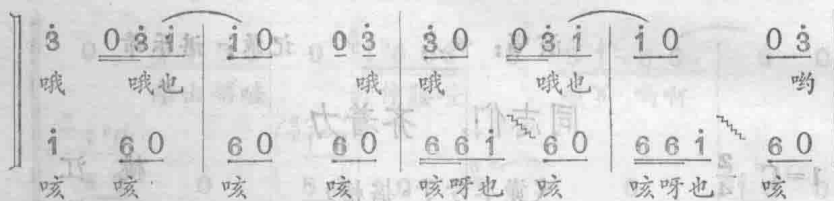 3 0 3 i | i 0 0 3 | 3 0 0 3 i | i 0 0 3
哦 哦也 哦 哦 哦也 哟
i 6 0 | 6 0 6 0 | 6 6 i 6 0 | 6 6 i 6 0
咳 咳 咳 咳 咳呀也 咳 咳呀也 咳